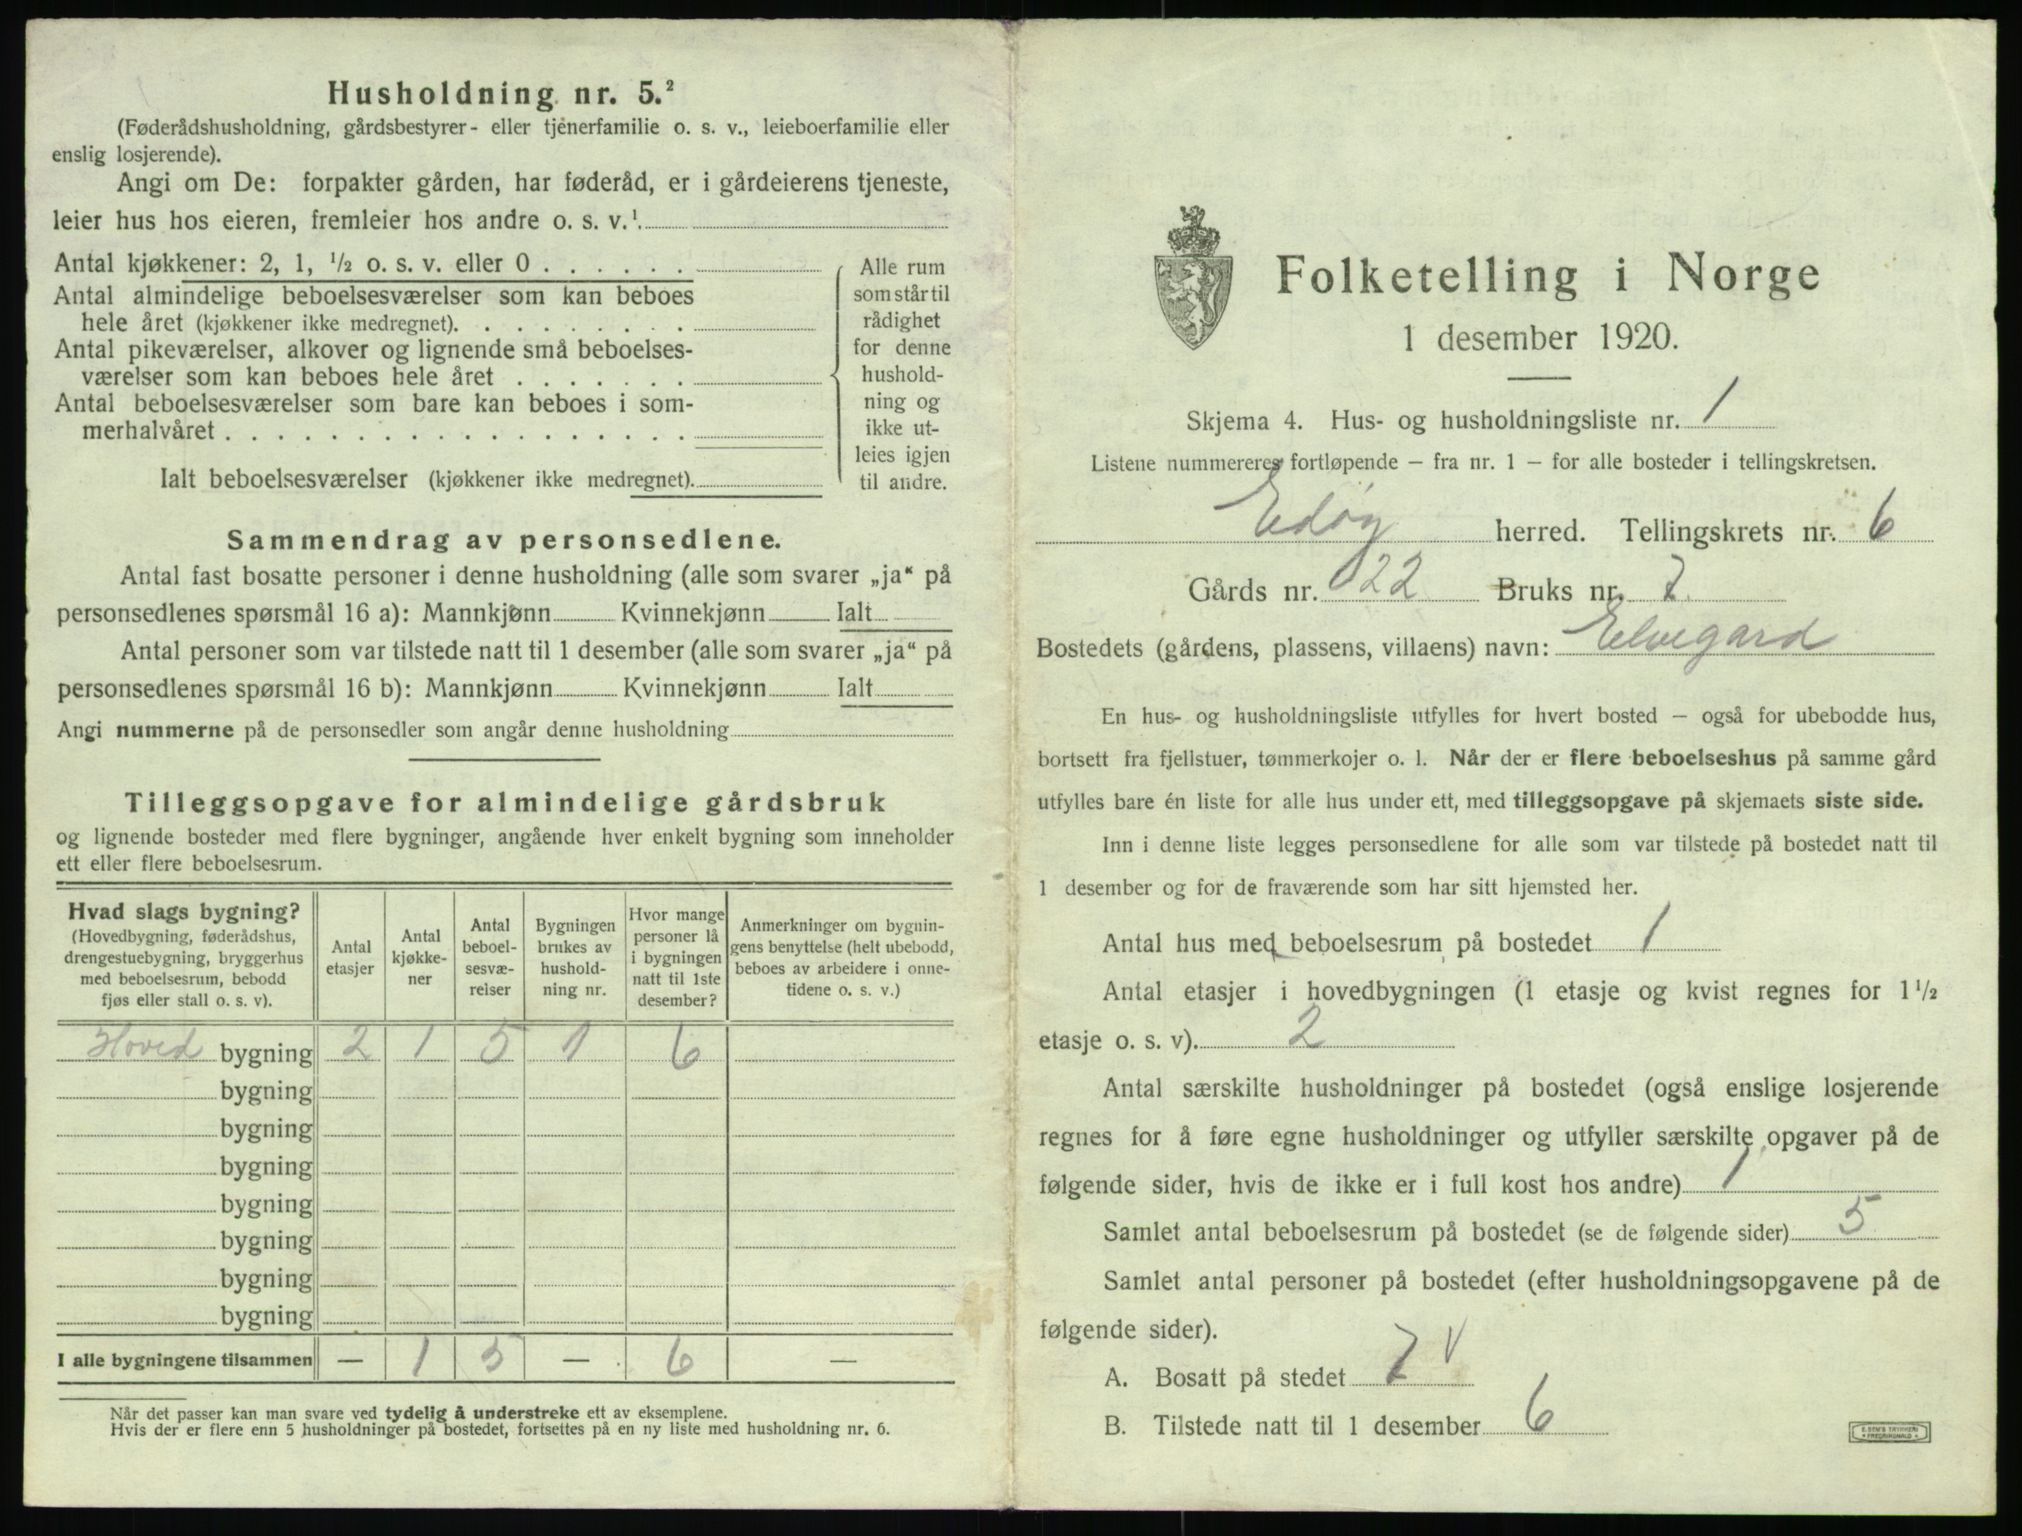 Husholdning nr. 5.²
(Føderådshusholdning, gårdsbestyrer- eller tjenerfamilie o. s. v., leieboerfamilie eller
enslig losjerende).
Angi om De: forpakter gården, har føderåd, er i gårdeierens tjeneste,
leier hus hos eieren, fremleier hos andre o. s. v.¹
Antal kjøkkener: 2, 1, ½ o. s. v. eller 0 . . . . . .
Antal almindelige beboelsesværelser som kan beboes
hele året (kjøkkener ikke medregnet). . . . . . . . .
Antal pikeværelser, alkover og lignende små beboelses-
værelser som kan beboes hele året . . . . . . .
Antal beboelsesværelser som bare kan beboes i som-
merhalvåret . . . . . . . . . . . . . . . . . .
Ialt beboelsesværelser (kjøkkener ikke medregnet).
Alle rum
som står til
rådighet
for denne
hushold-
ning og
ikke ut-
leies igjen
til andre.
Sammendrag av personsedlene.
Antal fast bosatte personer i denne husholdning (alle som svarer „ja“ på
personsedlenes spørsmål 16 a): Mannkjønn Kvinnekjønn Ialt
Antal personer som var tilstede natt til 1 desember (alle som svarer „ja“ på
personsedlenes spørsmål 16 b): Mannkjønn Kvinnekjønn Ialt
Angi nummerne på de personsedler som angår denne husholdning
Tilleggsopgave for almindelige gårdsbruk
og lignende bosteder med flere bygninger, angående hver enkelt bygning som inneholder
ett eller flere beboelsesrum.
Hvad slags bygning?
(Hovedbygning, føderådshus,
drengestuebygning, bryggerhus
med beboelsesrum, bebodd
fjøs eller stall o. s. v).
Antal
etasjer
Antal
kjøkke-
ner
Antal
beboel-
sesvæ-
relser
Bygningen
brukes av
hushold-
ning nr.
Hvor mange
personer lå
i bygningen
natt til 1ste
desember?
Anmerkninger om bygnin-
gens benyttelse (helt ubebodd,
beboes av arbeidere i onne-
tidene o. s. v.)
Hoved bygning 2 1 5 1 6
bygning
bygning
bygning
bygning
bygning
bygning
bygning
I alle bygningene tilsammen — 1 5 — 6 —
Når det passer kan man svare ved tydelig å understreke ett av eksemplene.
Hvis der er flere enn 5 husholdninger på bostedet, fortsettes på en ny liste med husholdning nr. 6.
Folketelling i Norge
1 desember 1920.
Skjema 4. Hus- og husholdningsliste nr. 1
Listene nummereres fortløpende – fra nr. 1 – for alle bosteder i tellingskretsen.
Edøy herred. Tellingskrets nr. 6
Gårds nr. 22 Bruks nr. 7
Bostedets (gårdens, plassens, villaens) navn: Elvegard
En hus- og husholdningsliste utfylles for hvert bosted – også for ubebodde hus,
bortsett fra fjellstuer, tømmerkojer o. l. Når der er flere beboelseshus på samme gård
utfylles bare én liste for alle hus under ett, med tilleggsopgave på skjemaets siste side.
Inn i denne liste legges personsedlene for alle som var tilstede på bostedet natt til
1 desember og for de fraværende som har sitt hjemsted her.
Antal hus med beboelsesrum på bostedet 1
Antal etasjer i hovedbygningen (1 etasje og kvist regnes for 1½
etasje o. s. v). 2
Antal særskilte husholdninger på bostedet (også enslige losjerende
regnes for å føre egne husholdninger og utfyller særskilte opgaver på de
følgende sider, hvis de ikke er i full kost hos andre) 1
Samlet antal beboelsesrum på bostedet (se de følgende sider) 5
Samlet antal personer på bostedet (efter husholdningsopgavene på de
følgende sider).
A. Bosatt på stedet 7 V
B. Tilstede natt til 1 desember 6